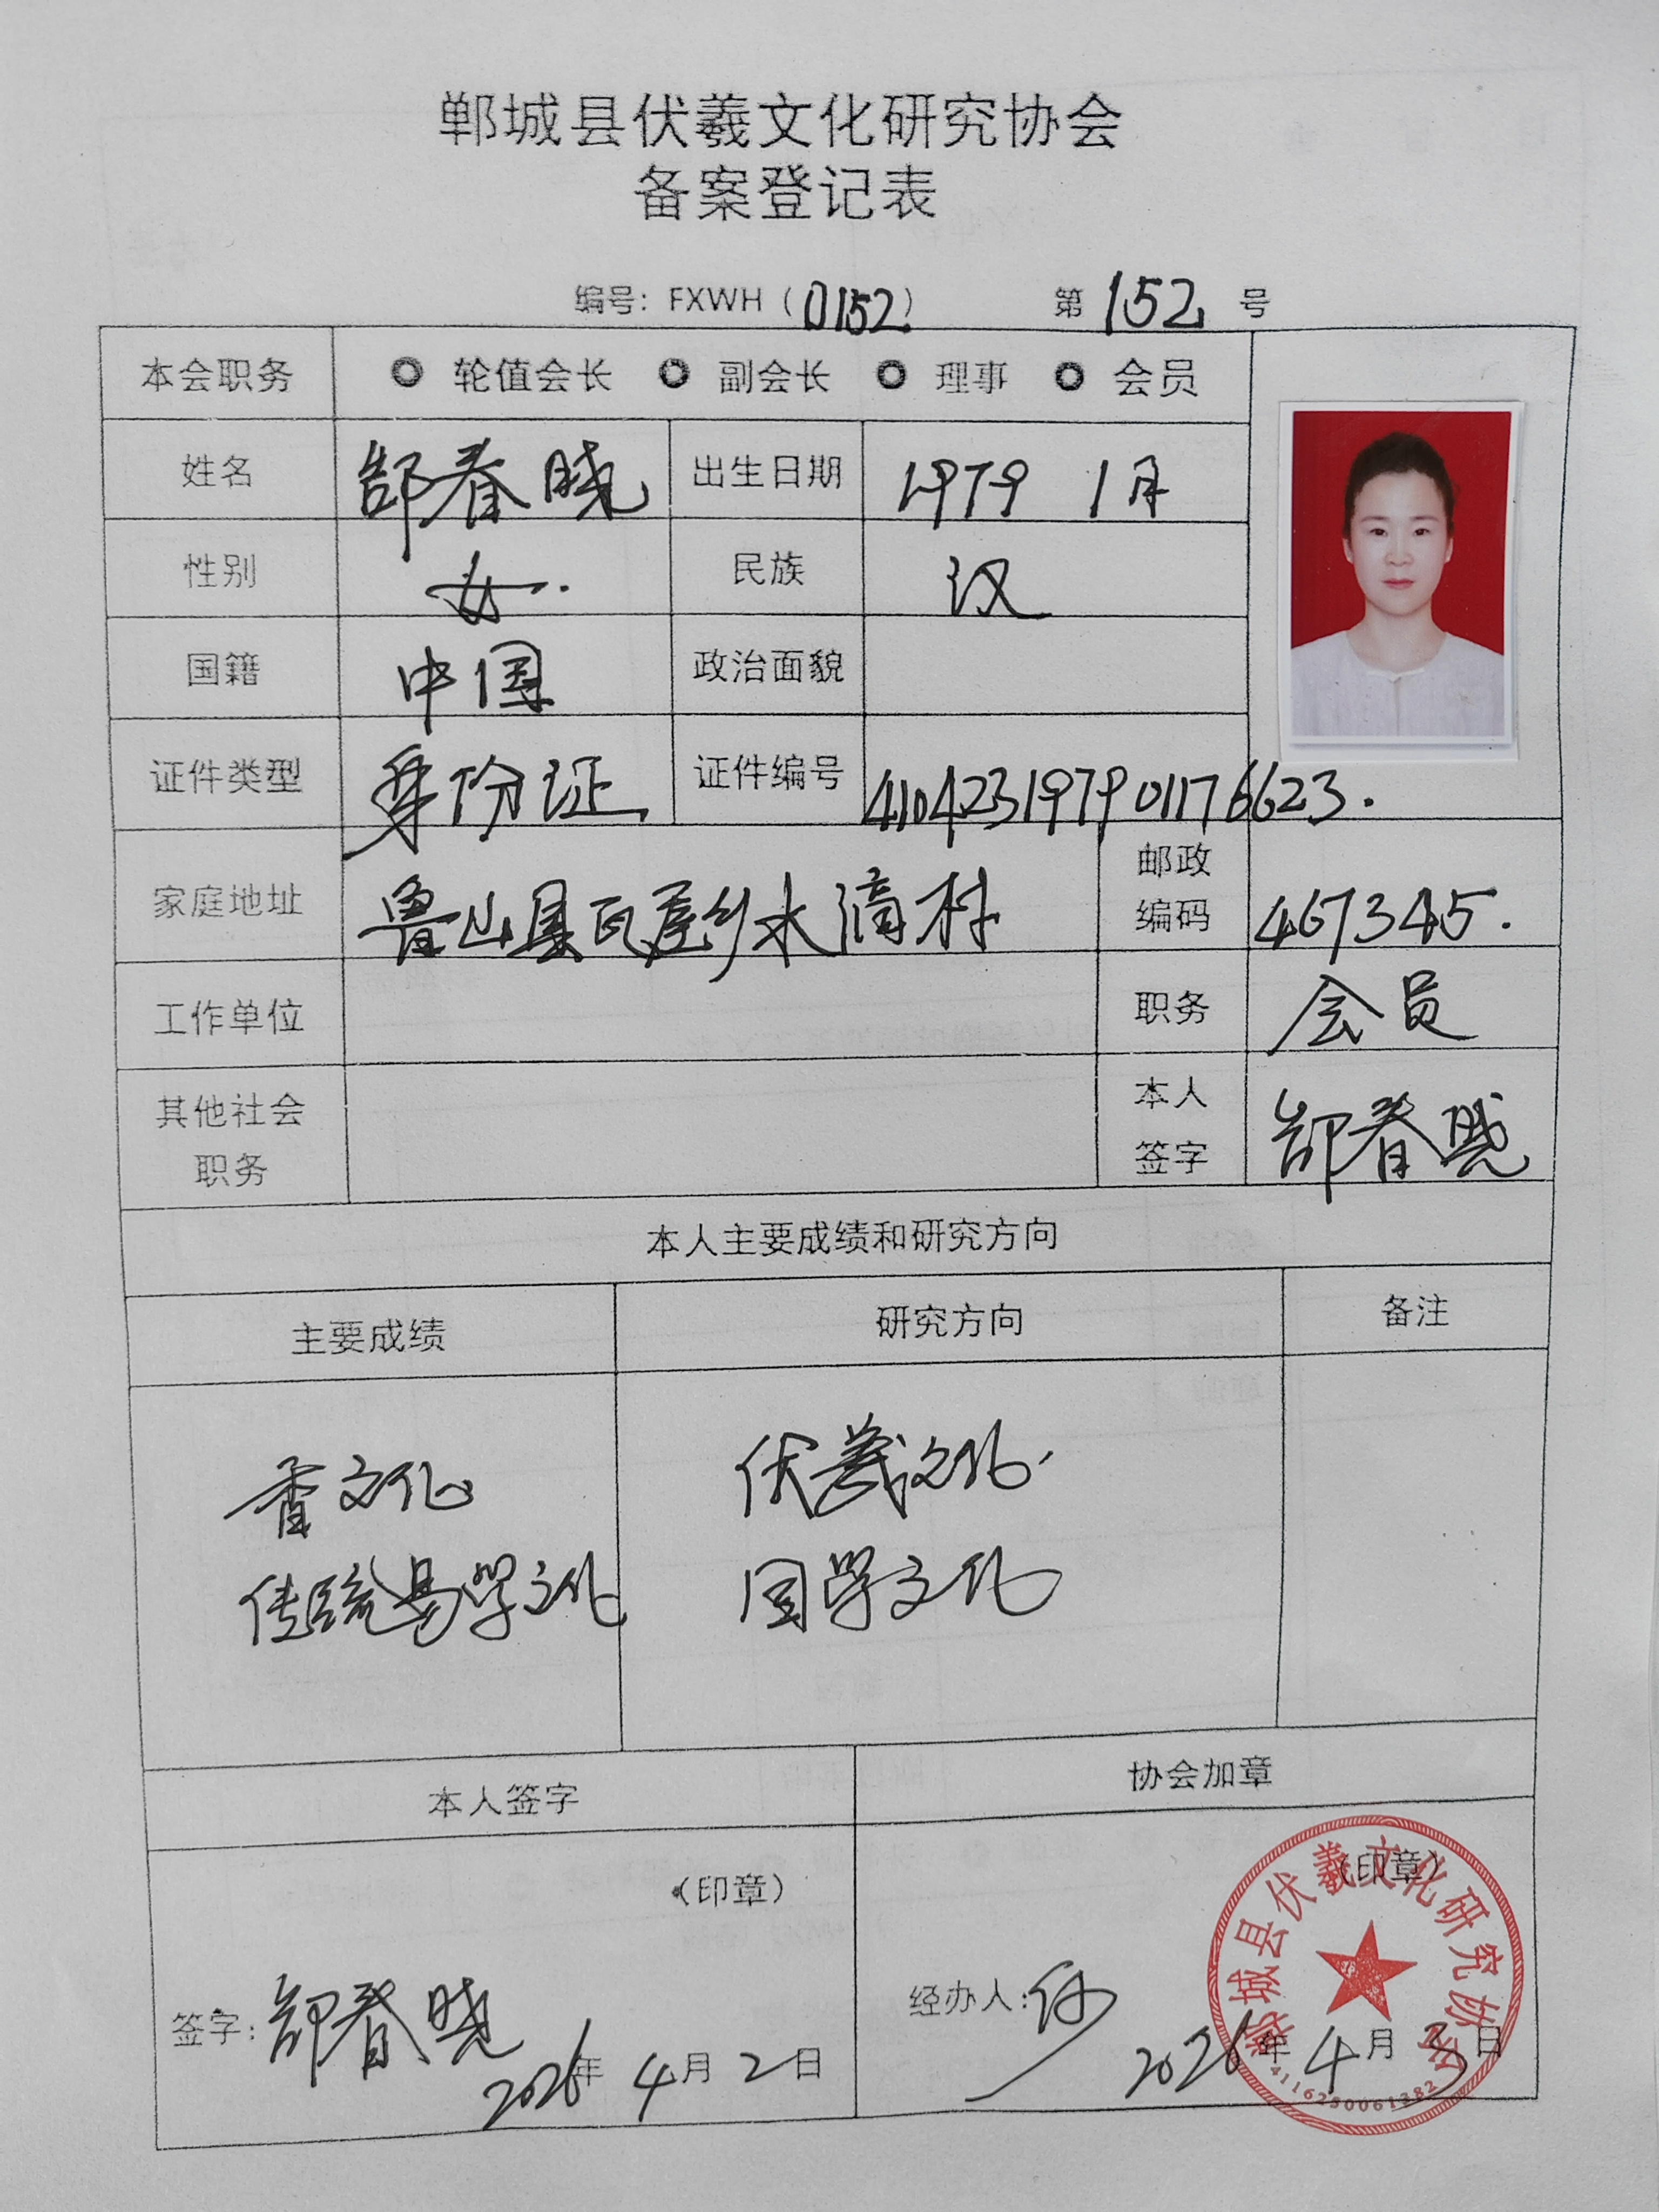 郸城县伏羲文化研究协会
备案登记表
编号：FXWH（0152） 第152号
本会职务 轮值会长 副会长 理事 会员
姓名 郜春晓 出生日期 1979 1月
性别 女. 民族 汉
国籍 中国 政治面貌
证件类型 身份证 证件编号 410423197901176623.
家庭地址 鲁山县瓦屋乡水滴村 邮政编码 467345.
工作单位 职务 会员
其他社会职务 本人签字 郜春晓
本人主要成绩和研究方向
主要成绩 研究方向 备注
香文化 伏羲文化.
传统易学文化 国学文化
本人签字 协会加章
（印章） （印章）
签字：郜春晓 经办人：
2026年4月2日 2026年4月3日
郸城县伏羲文化研究协会